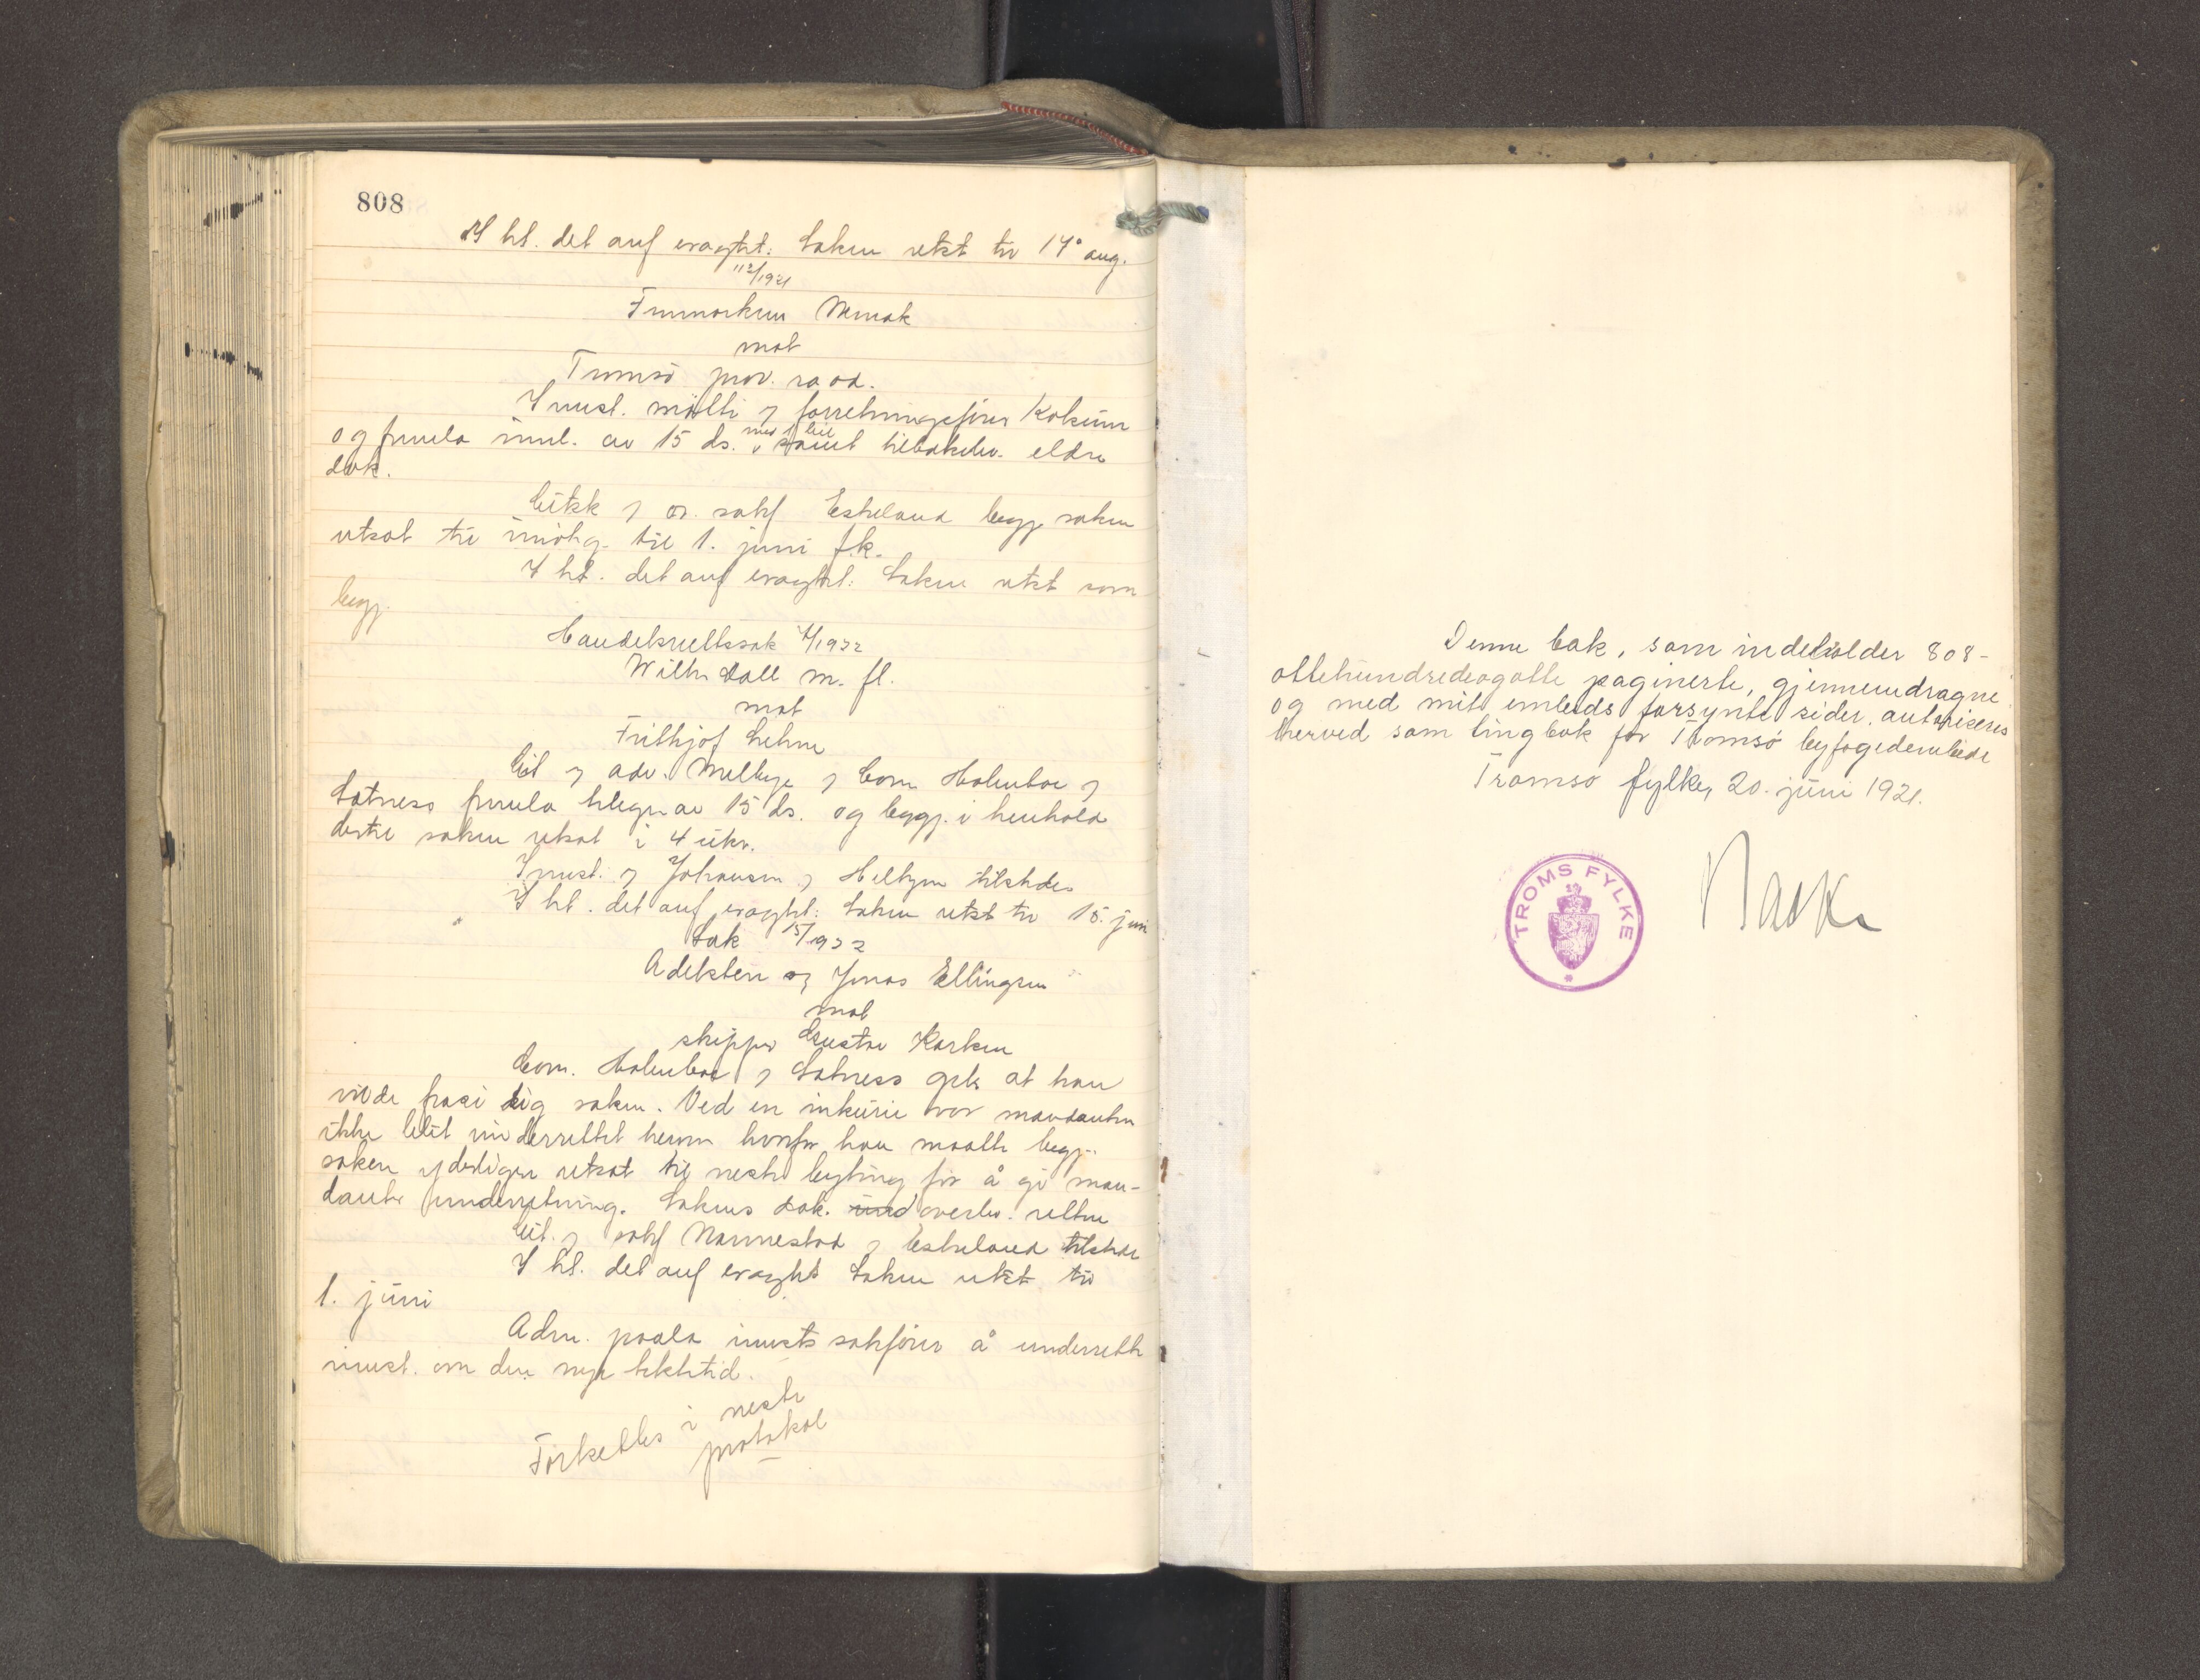 808
I ht. det auf eragtet: Saken utst til 17de aug.
112/1921
mot
Tromsö prov. raad.
I nnst. mötte v forretningsförer
og freml. innl. av 15 ds. med 1 bil. samt tilbakelev. eldre
dok.
Citk v or. sakf Eskeland begj. saken
utsat til imötg. til 1. juni f.k.
I ht. det auf eragtet: Saken utst som
begj.
Handelsrettssak 4/1922
Wilh. Dall m. fl.
mot
Frithjof Lehne
Cit v adv. Melbye v Com Holmboe v
Satness fremla tilegn av 15 ds. og begj. i henhold
dertil saken utsat i 4 uker.
Innst. v Johansen v tilstede
I ht. det auf eragtet: Saken utst til 15. juni
Sak 15/1922
Adelsten og Jonas Ellingsen
mot
skipper Gustav Karlsen
Com. Holmboe v Satness gjd. at han
vilde frasi sig saken. Ved en inkurie var mandanten
ikke blit underrettet herom hvorfor han maatte begj.
saken yderligere utsat til neste byting for å gi man-
danten underretning. Sakens dok. overlev. retten
Cit. v sakf Nannestad v Eskeland tilstede
I ht. det auf eragtet Saken utst til
1. juni
Adm. paala innsts sakförer å underrette
innst. om den nye tektetid.
Forsettes i neste
protokol
Denne bok, som indeholder 808-
ottehundredeogotte paginerte, gjennemdragne
og med mit embeds forsynte sider, autoriseres
herved som tingbok for Tromsö byfogedembede
Tromsö fylke, 20. juni 1921.
TROMS FYLKE